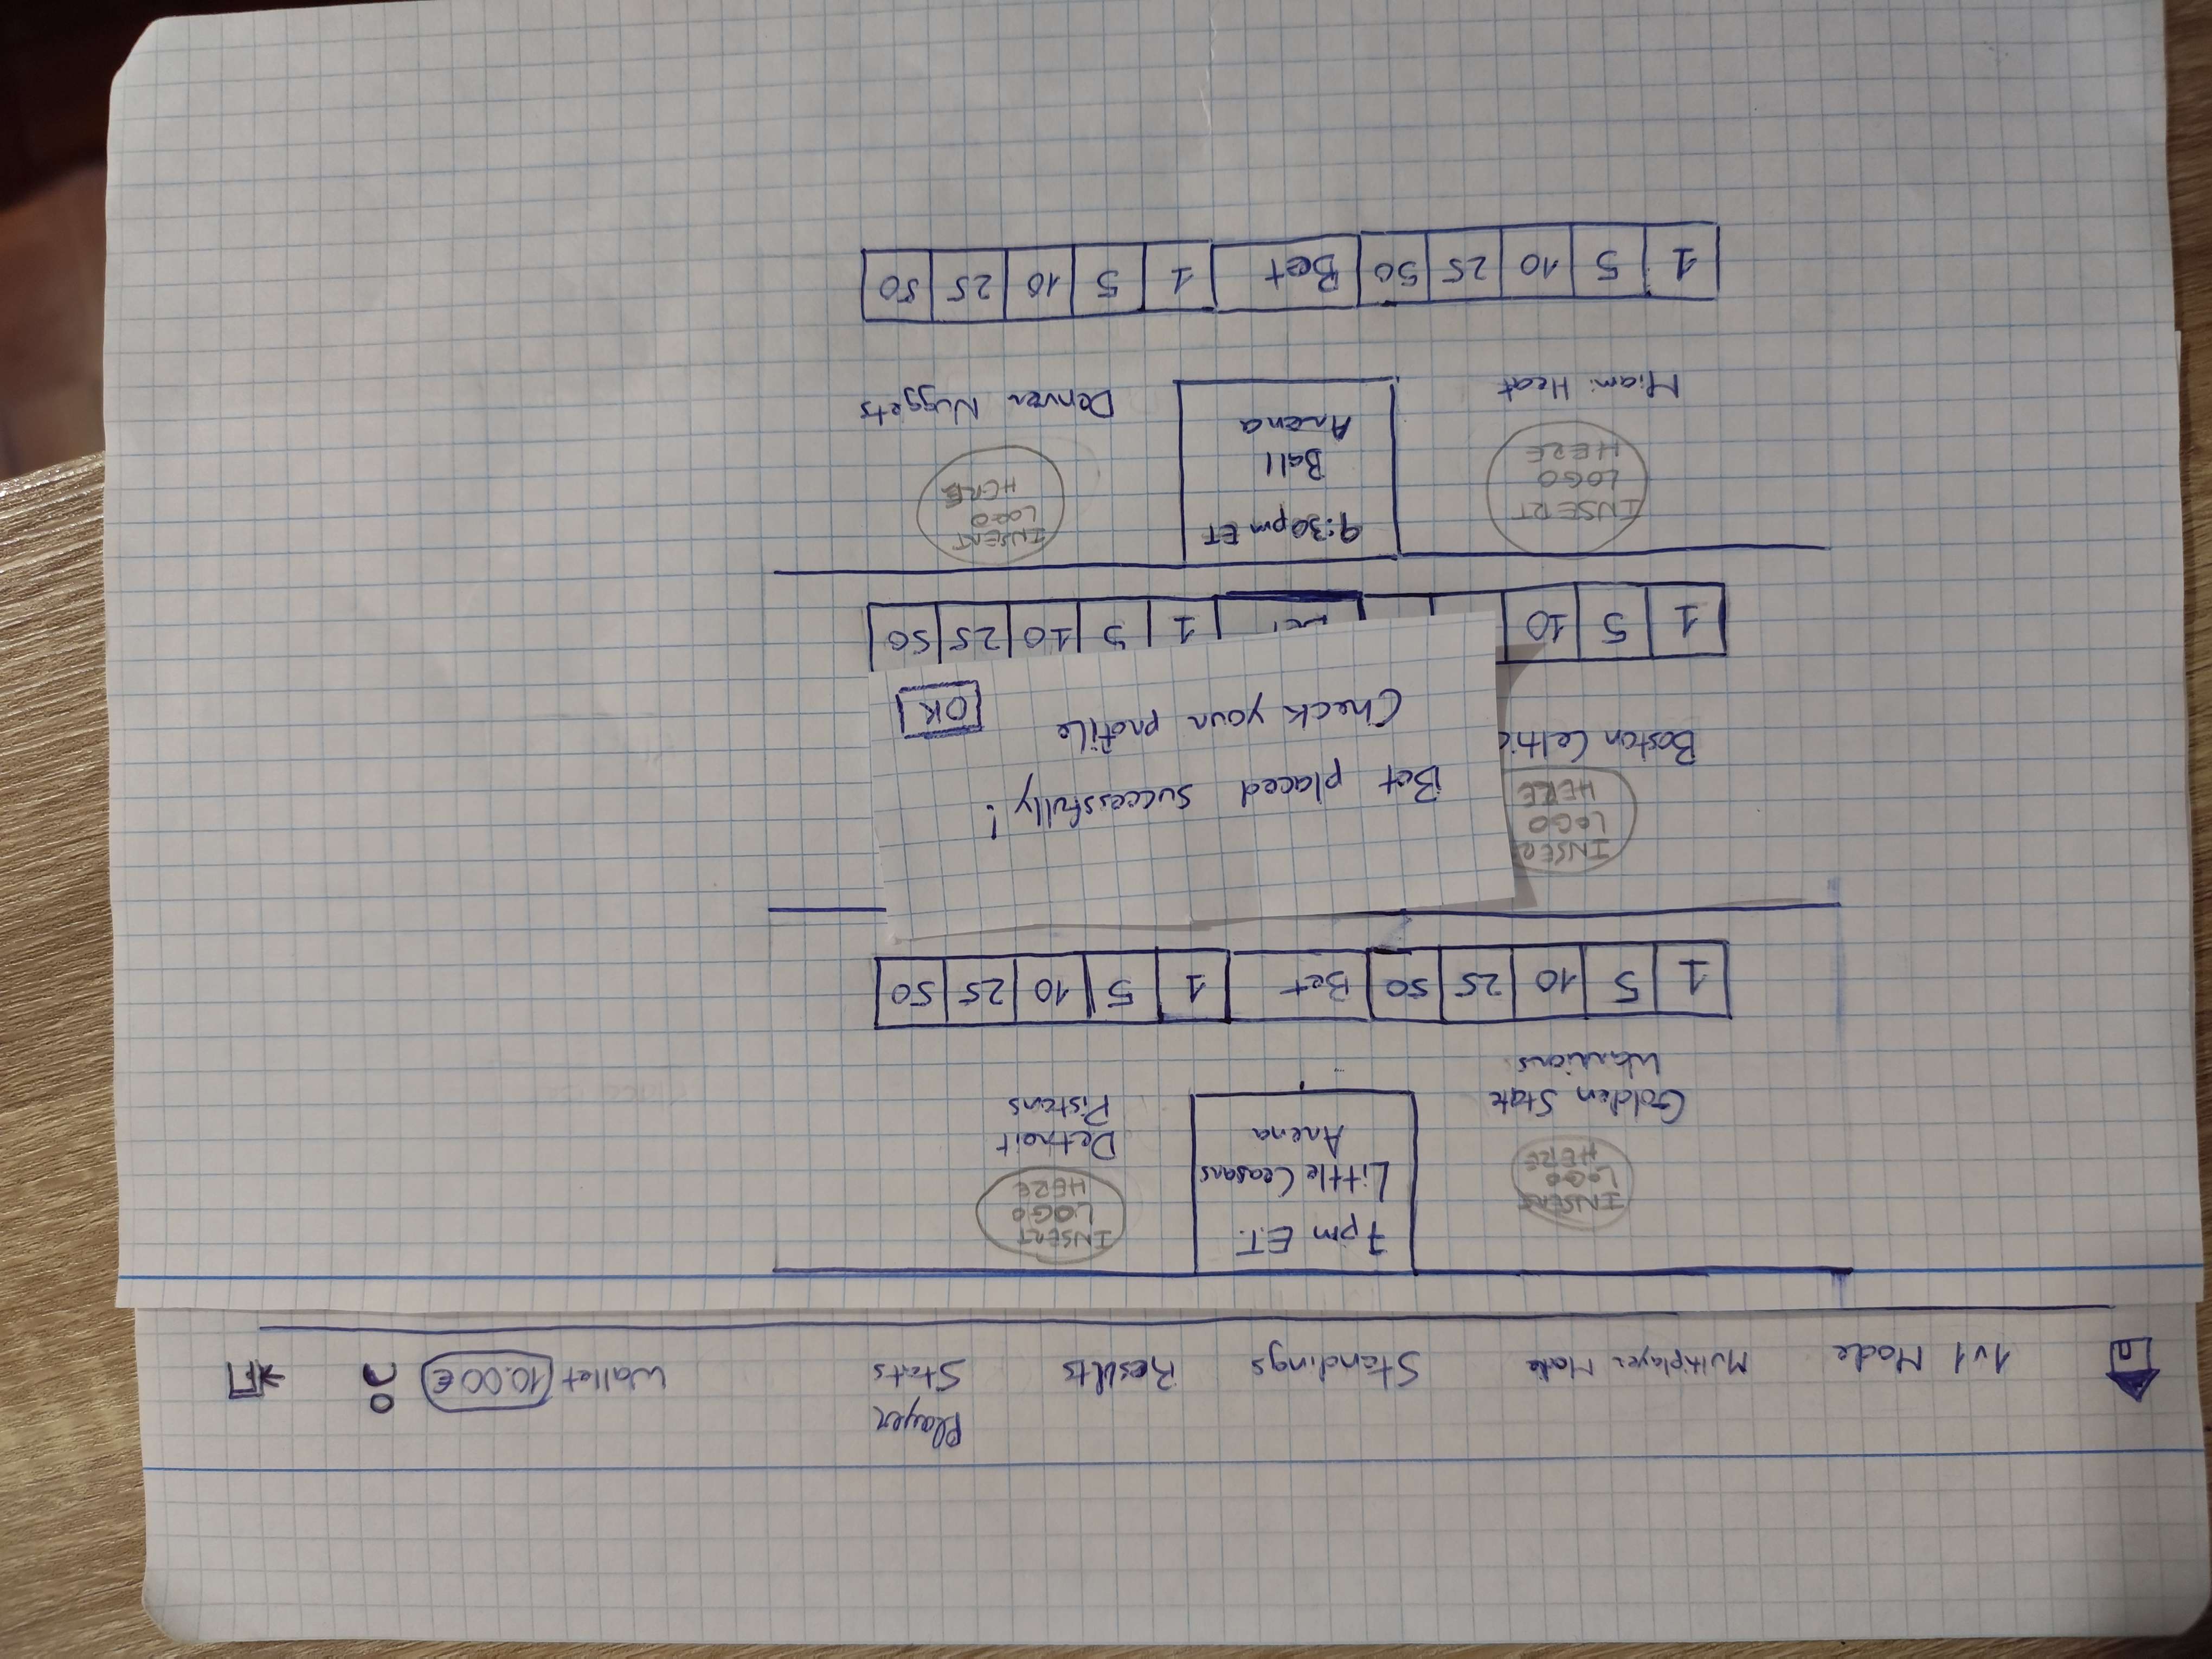 Player
1v1 Mode Multiplayer Mode Standings Results Stats Wallet 10.00€
7pm E.T.
Little Ceasars
Arena
INSERT
LOGO
HERE
Golden State
Warriors
INSERT
LOGO
HERE
Detroit
Pistons
1 5 10 25 50 Bet 1 5 10 25 50
INSER
LOGO
HERE
Boston Celtic
Bet placed successfully!
Check your profile OK
1 5 10 1 5 10 25 50
INSERT
LOGO
HERE
Miami Heat
9:30pm ET
Ball
Arena
INSERT
LOGO
HERE
Denver Nuggets
1 5 10 25 50 Bet 1 5 10 25 50